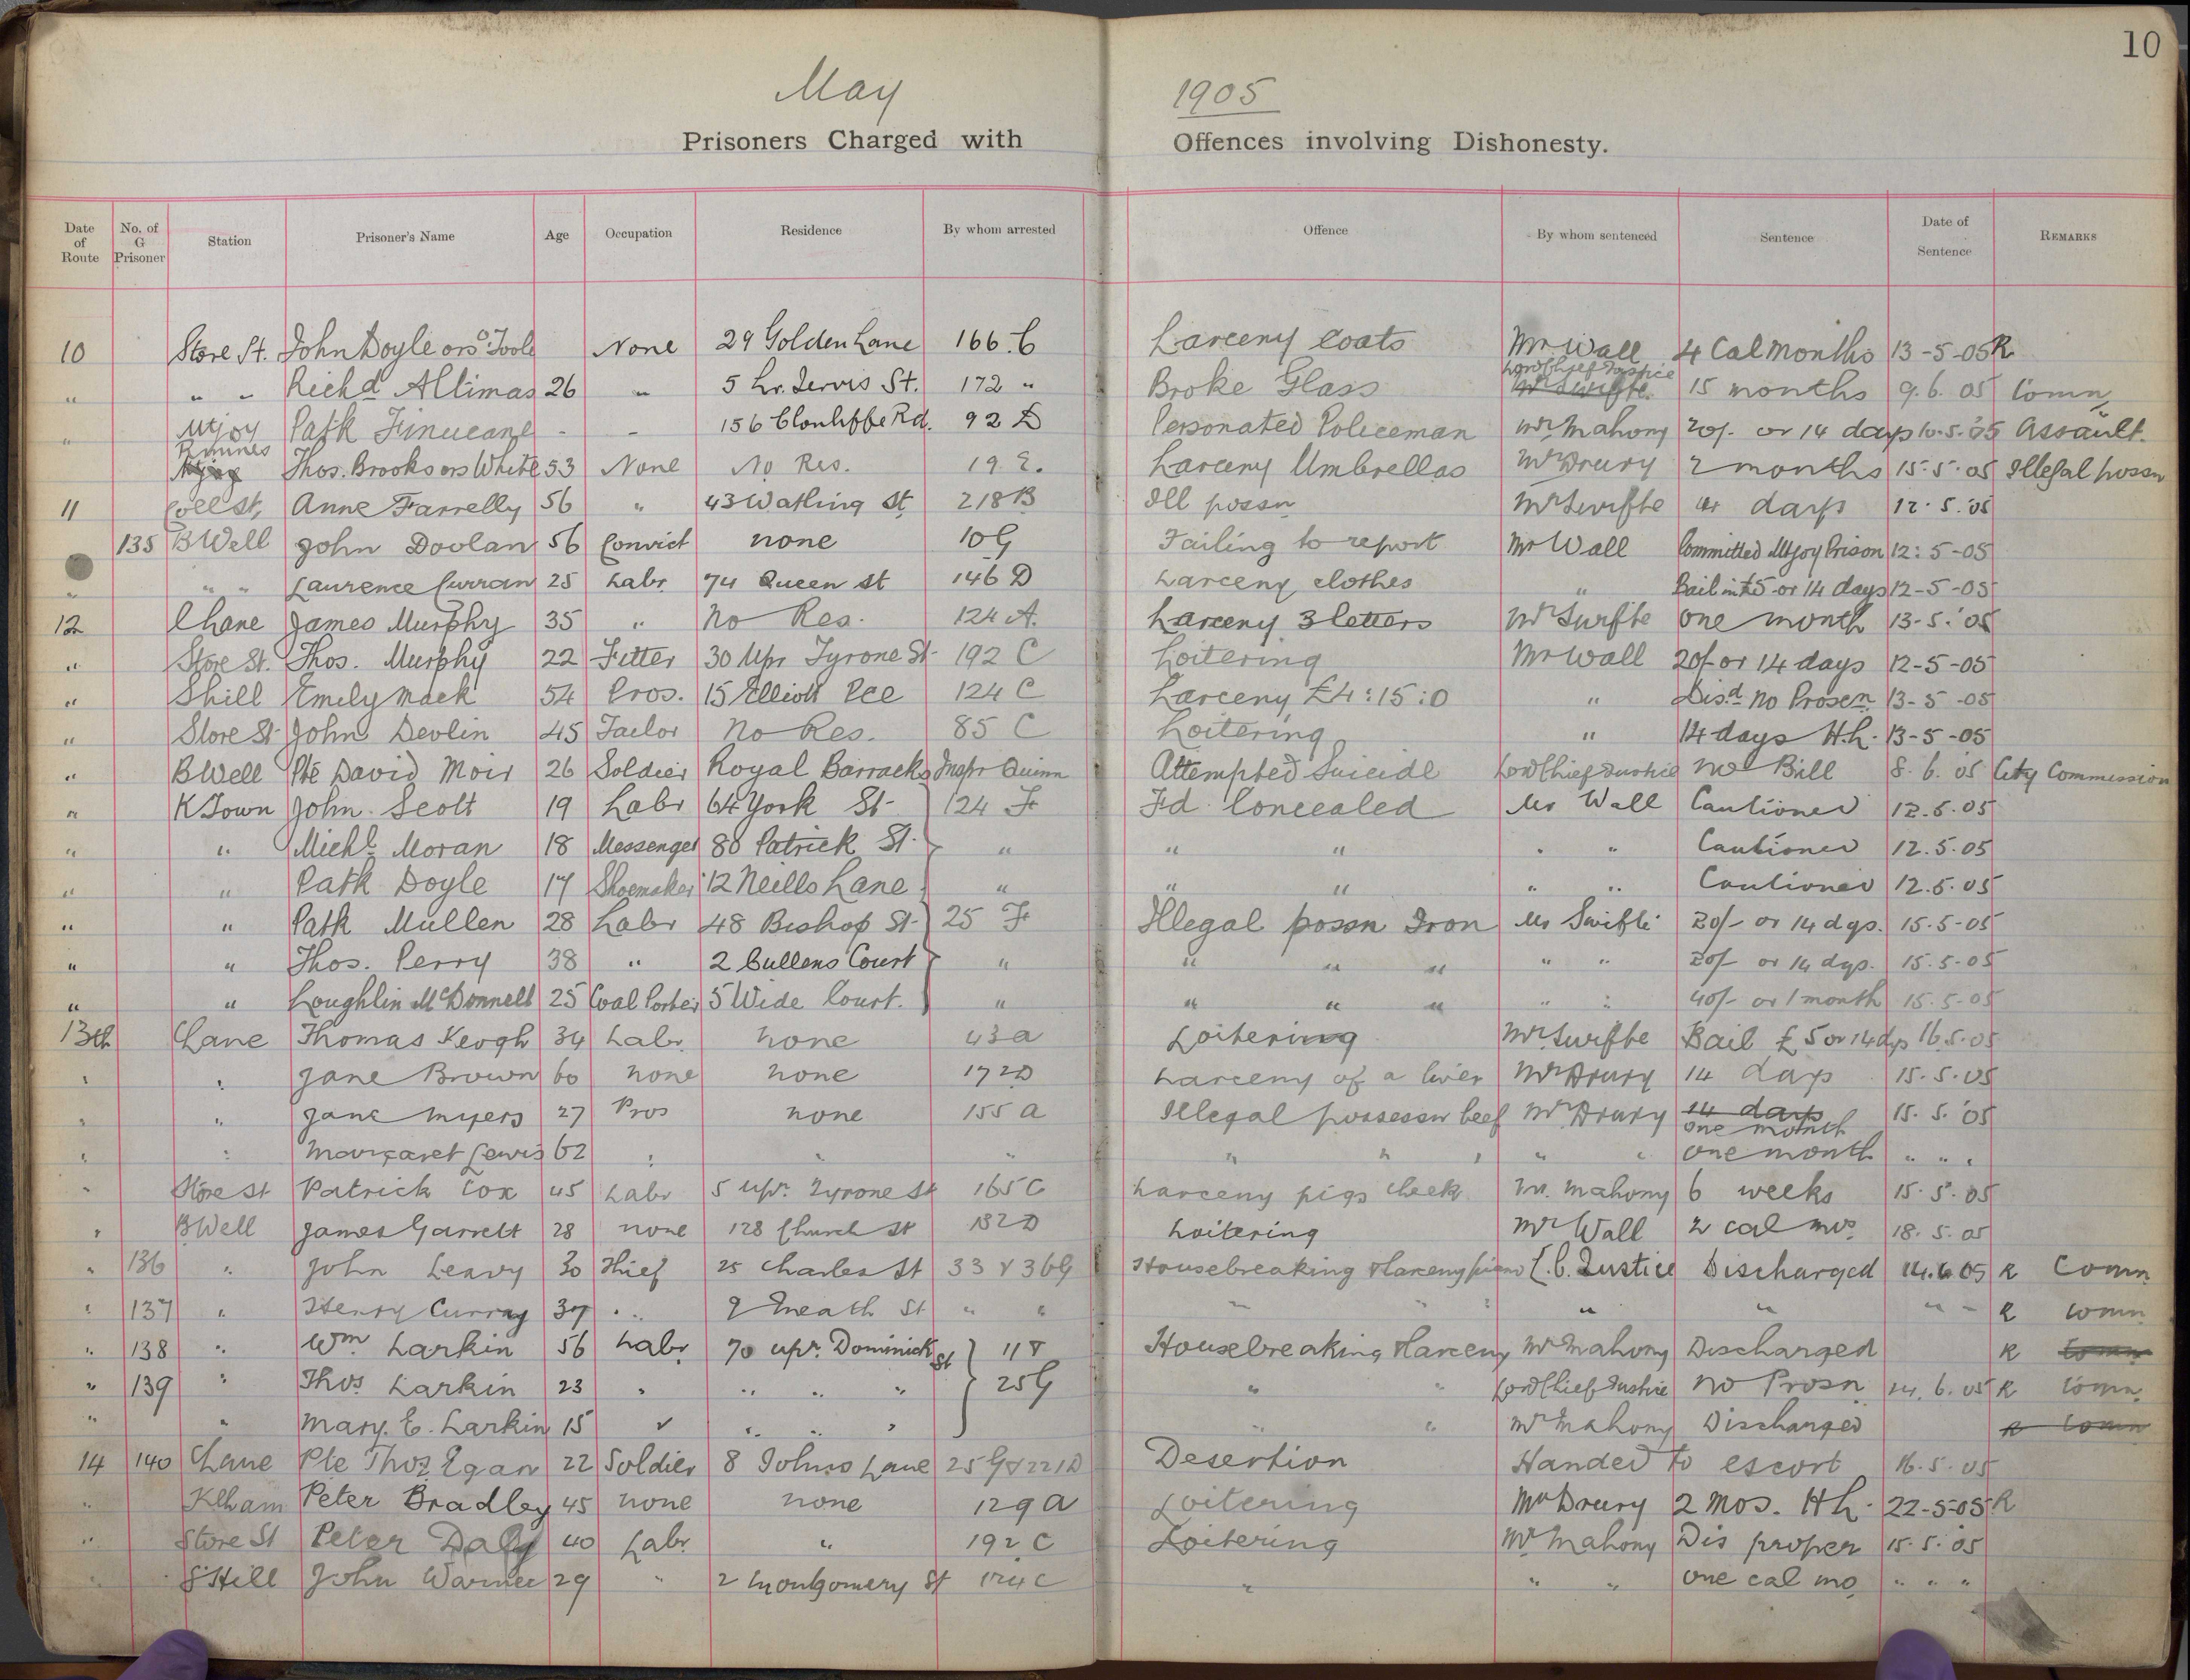 10
May 1905
Prisoners Charged with Offences involving Dishonesty.
Date of Route | No. of G Prisoner | Station | Prisoner's Name | Age | Occupation | Residence | By whom arrested | Offence | By whom sentenced | Sentence | Date of Sentence | Remarks
10 Store St. John Doyle ors O'Toole None 29 Golden Lane 166 C Larceny Coats Mr Wall 4 Cal Months 13-5-05 R
" " " Richd Allimas 26 " 5 Lr. Jervis St. 172 " Broke Glass Lord Chief Justice Mr Swifte 15 months 9.6.05 Comn
" Mtjoy Patk Finucane - - 156 Clonliffe Rd. 92 D Personated Policeman Mr Mahony 20/- or 14 days 10.5.'05 Assault.
Rooms Mtjoy Thos. Brooks ors White 53 None No Res. 19 E. Larceny Umbrellas Mr Drury 2 months 15.5.05 Illegal possn
11 Coll St, Anne Farrelly 56 " 43 Watling St 218 B Ill possn Mr Swifte 14 days 12.5.'05
135 B Well John Doolan 56 Convict none 10 G Failing to report Mr Wall Committed Mtjoy Prison 12:5-05
" " " Laurence Curran 25 Labr. 74 Queen St 146 D Larceny clothes " Bail in £5 or 14 days 12-5-05
12 C Lane James Murphy 35 " No Res. 124 A. Larceny 3 letters Mr Swifte One month 13-5.'05
" Store St. Thos. Murphy 22 Fitter 30 Upr Tyrone St 192 C Loitering Mr Wall 20/- or 14 days 12-5-05
" S hill Emily Mack 54 Pros. 15 Elliott Pce 124 C Larceny £4:15:0 " Disd No Prosen 13-5-05
" Store St John Devlin 45 Tailor No Res. 85 C Loitering " 14 days H.L. 13-5-05
" B Well Pte David Moir 26 Soldier Royal Barracks Inspr Quinn Attempted Suicide Lord Chief Justice No Bill 8.6.05 City Commission
" K Town John Scott 19 Labr 64 York St 124 F Fd Concealed Mr Wall Cautioned 12.5.05
" " Michl Moran 18 Messenger 80 Patrick St. " " " " " Cautioned 12.5.05
" " Patk Doyle 17 Shoemaker 12 Neills Lane " " " " " Cautioned 12.5.05
" " Patk Mullen 28 Labr 48 Bishop St 25 F Illegal possn Iron Mr Swifte 20/- or 14 dys. 15.5-05
" " Thos. Perry 38 " 2 Cullens Court " " " " " " 20/- or 14 dys. 15.5-05
" " Loughlin McDonnell 25 Coal Porter 5 Wide Court. " " " " " " 40/- or 1 month 15.5-05
13th C Lane Thomas Keogh 34 Labr. none 43 a Loitering Mr Swifte Bail £5 or 14 dys 16.5.05
" " Jane Brown 60 none none 172 D Larceny of a liver Mr Drury 14 days 15.5.05
" " Jane Myers 27 Pros none 155 a Illegal possessn beef Mr Drury 14 days one month 15.5.'05
" " Margaret Lewis 62 " " " " " " " " one month " " "
" Store St Patrick Cox 45 Labr 5 upr. Tyrone St 165 C Larceny pigs cheek Mr. Mahony 6 weeks 15.5.05
" B Well James Garrett 28 none 128 Church St 182 D Loitering Mr Wall 2 cal mos. 18.5.05
" 136 " John Leavy 30 Thief 25 Charles St 33 & 36 G Housebreaking & Larceny L.C. Justice Discharged 14.6.05 R Comn
" 137 " Henry Curray 37 " 9 Meath St " " " " " " " " " R Comn
" 138 " Wm Larkin 56 Labr. 70 upr. Dominick St 11 & Housebreaking & Larceny Mr Mahony Discharged R Comn
" 139 " Thos Larkin 23 " " " " 25 G " " Lord Chief Justice No Prosn 14.6.05 R Comn.
" " Mary. E. Larkin 15 " " " " " " Mr Mahony Discharged R Comn
14 140 C Lane Pte Thos Egan 22 Soldier 8 Johns Lane 25 G & 221 D Desertion Handed to escort 16.5.05
" Kilham Peter Bradley 45 none none 129 a Loitering Mr Drury 2 mos. H.L. 22-5-05 R
" Store St Peter Daly 40 Labr. " 192 C Loitering Mr Mahony Dis proper 15.5.'05
" S' Hill John Warner 29 " 2 Montgomery St 174 C " " " one cal mo. " " "